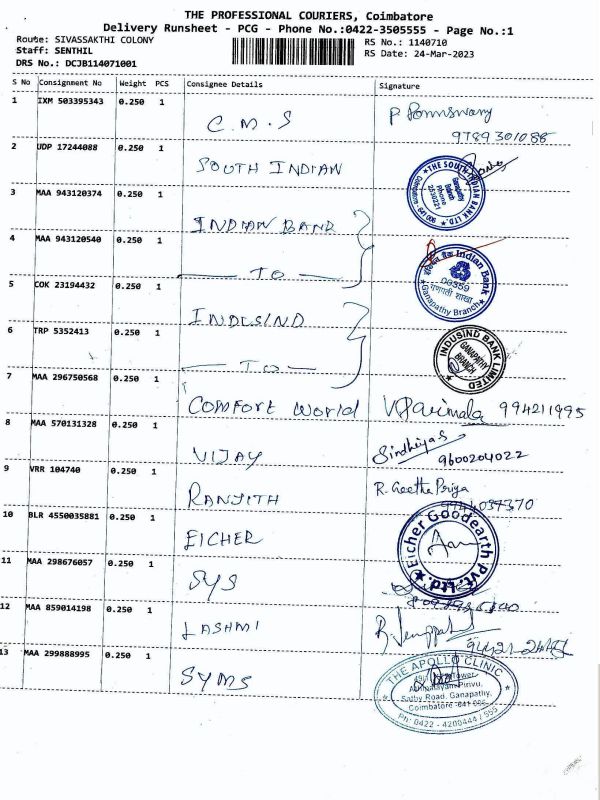 THE PROFESSIONAL COURIERS, Coimbatore
Delivery Runsheet - PCG - Phone No.:0422-3505555 - Page No.:1
Route: SIVASSAKTHI COLONY
RS No.: 1140710
Staff: SENTHIL
RS Date: 24-Mar-2023
DRS No.: DCJB114071001
S No Consignment No Weight PCS Consignee Details Signature
1 IXM 503395343 0.250 1
C.M.S
9789301086
2 UDP 17244088 0.250 1
SOUTH INDIAN
THE SOUTH INDIAN BANK LTD.
Ganapathy
Phone
3 MAA 943120374 0.250 1
INDIAN BANK
4 MAA 943120540 0.250 1
TO
Indian Bank
गणपती शाखा
Ganapathy Branch
5 COK 23194432 0.250 1
INDUSIND
6 TRP 5352413 0.250 1
TO
INDUSIND BANK LIMITED
GANAPATHY
BRANCH
7 MAA 296750568 0.250 1
COMFORT World V Parimala 994211995
8 MAA 570131328 0.250 1
VIJAY Sindhiya S
9600204022
9 VRR 104740 0.250 1
RANJITH R. Geetha Priya
10 BLR 4550035881 0.250 1
EICHER
Eicher Goodearth Pvt. Ltd.
11 MAA 298676057 0.250 1
SYS
12 MAA 859014198 0.250 1
LASHMI
13 MAA 299888995 0.250 1
SYMS
THE APOLLO CLINIC
Sathy Road, Ganapathy,
Coimbatore
Ph: 0422 - 4200444 / 555